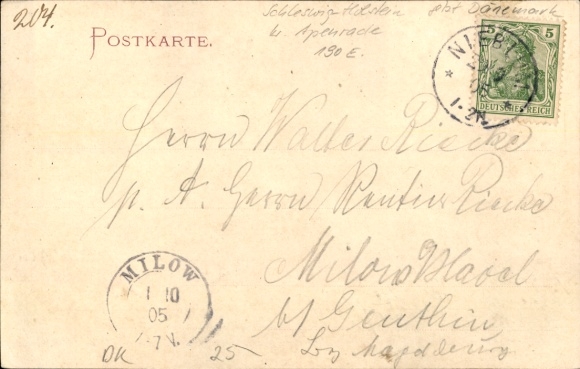 204.
Schleswig-Holstein jetzt Dänemark
b. Apenrade
190 E.
POSTKARTE.
5
DEUTSCHES REICH
05
1-2N.
Herrn Walter Riecke
p. A. Herrn Rentier Riecke
Milow Havel
b/ Genthin
Bez Magdeburg
MILOW
1 10
05
-7N.
DK 25